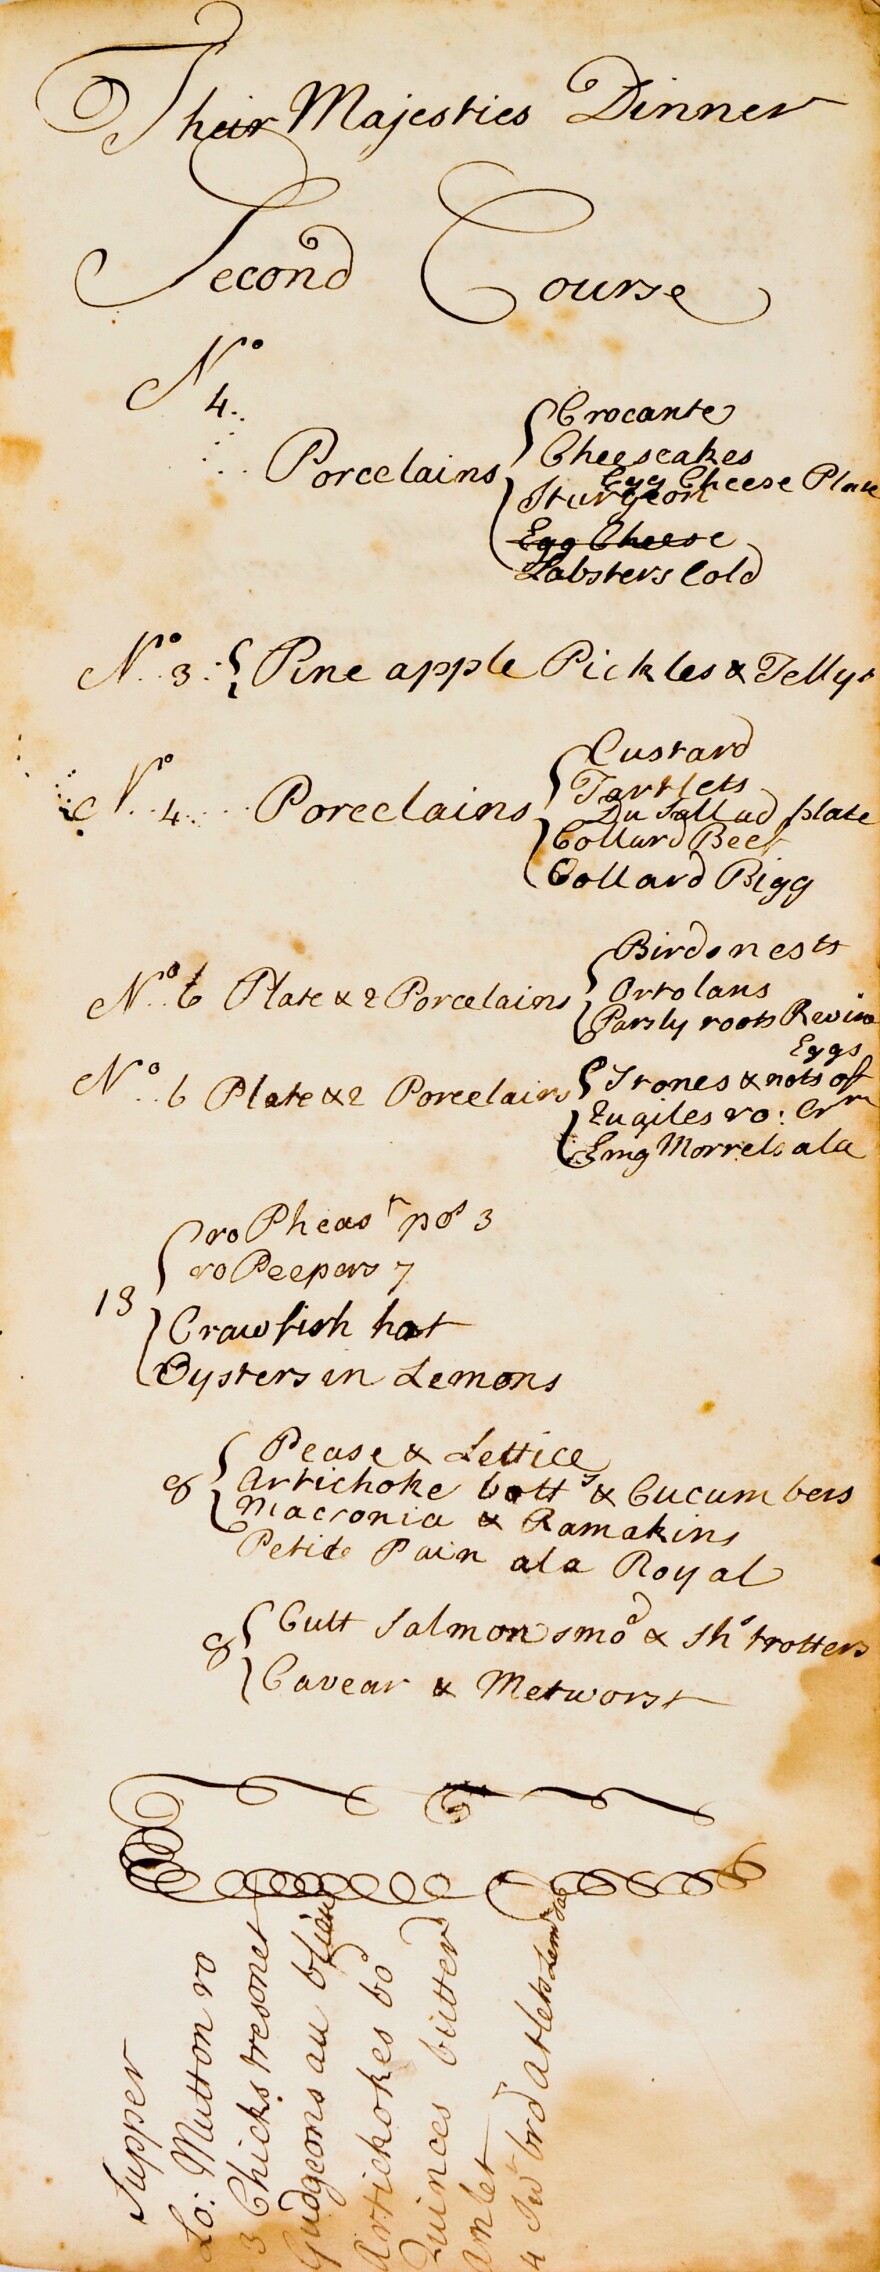 Their Majesties Dinner
Second Course
No
4
Porcelains
Crocante
Cheesecakes
Egg Cheese Plate
Sturgeon
Egg Cheese
Lobsters Cold
No 3 Pine apple Pickles & Jellys
No 4 Porcelains
Custard
Tartlets
Du Sallad plate
Collard Beef
Collard Pigg
No 6 Plate & 2 Porcelains
Birds nests
Ortolans
Parsly roots
Eggs
No 6 Plate & 2 Porcelains
Stones & nots off
ro: Crm
Morrels ala
13
ro Pheast pos 3
ro Peepers 7
Crawfish hot
Oysters in Lemons
8
Pease & Lettice
Artichoke botts & Cucumbers
Macronia & Ramakins
Petite Pain ala Royal
8
Cutt Salmon smod & shs trotters
Cavear & Metworst
Supper
Lo: Mutton ro
3 Chicks
Gudgeons au
Artichokes bo
Quinces butterd
Amlet
4 Swt brd Atlets